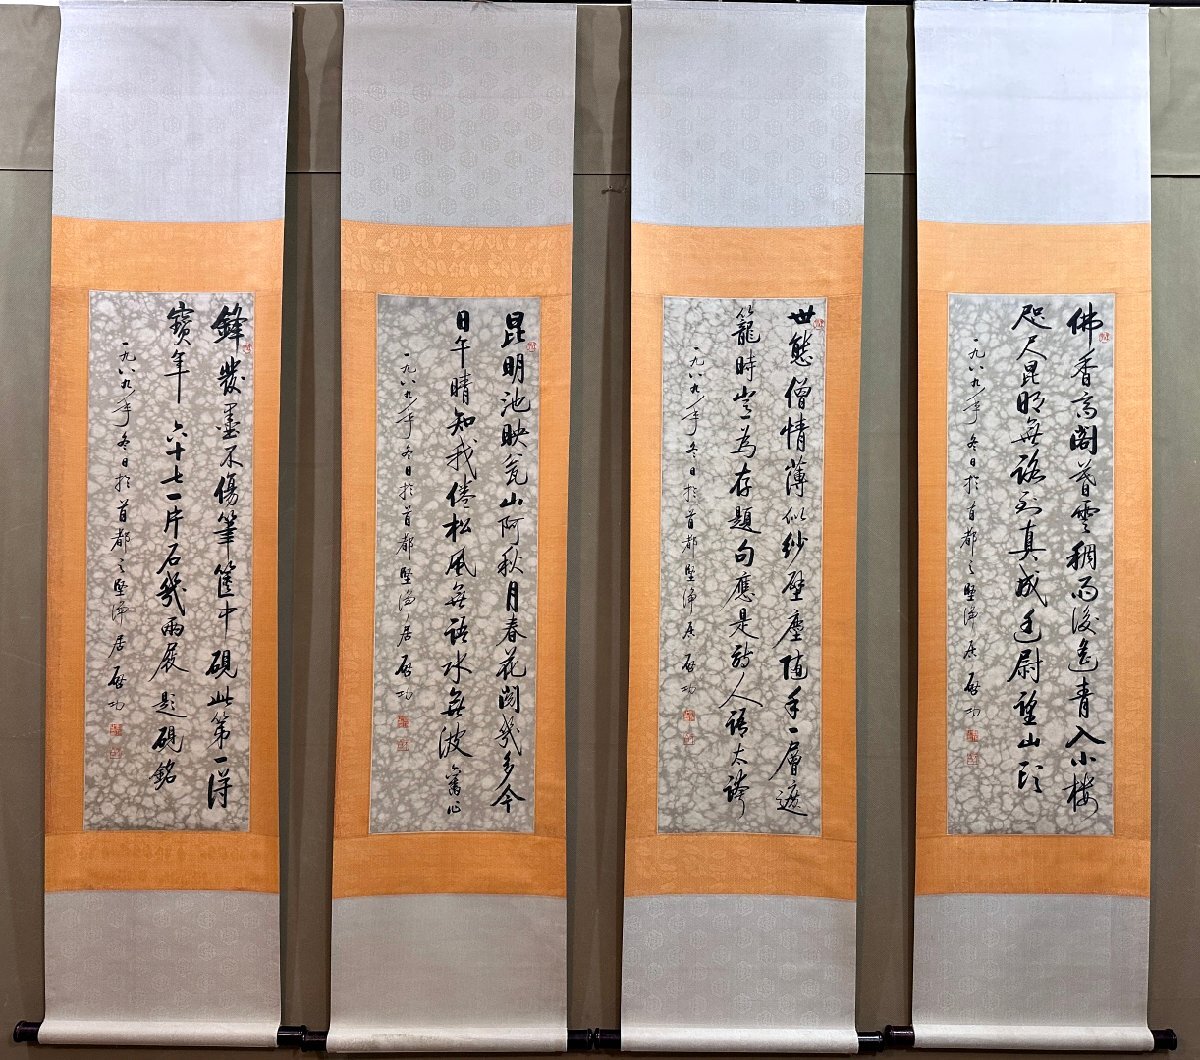 佛香高閣暮雲稠雨後遙青入小樓
咫尺昆明無路到真成廷尉望山頭
一九八九年冬日於首都之堅淨居 啓功
世態僧情薄似紗壁塵隨手一層遮
籠時豈為存題句應是詩人語太誇
一九八九年冬日於首都堅淨居 啓功
昆明池映瓮山阿秋月春花閱幾多今
日午晴知我倦松風無語水無波 舊作
一九八九年冬日於首都堅淨居 啓功
鋒發墨不傷筆篋中硯此第一得
寶年六十七一片石幾兩屐 題硯銘
一九八九年冬日於首都之堅淨居 啓功